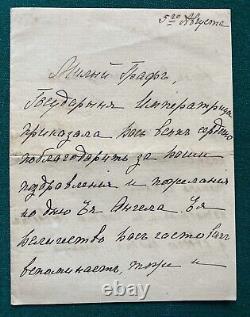 5го Августа
Милый Графъ,
Государыня Императрица
приказала Васъ сердечно
поблагодарить за Ваши
поздравленія и пожеланія
ко дню Ея Ангела. Ея
Величество Васъ часто
вспоминаетъ, тоже и